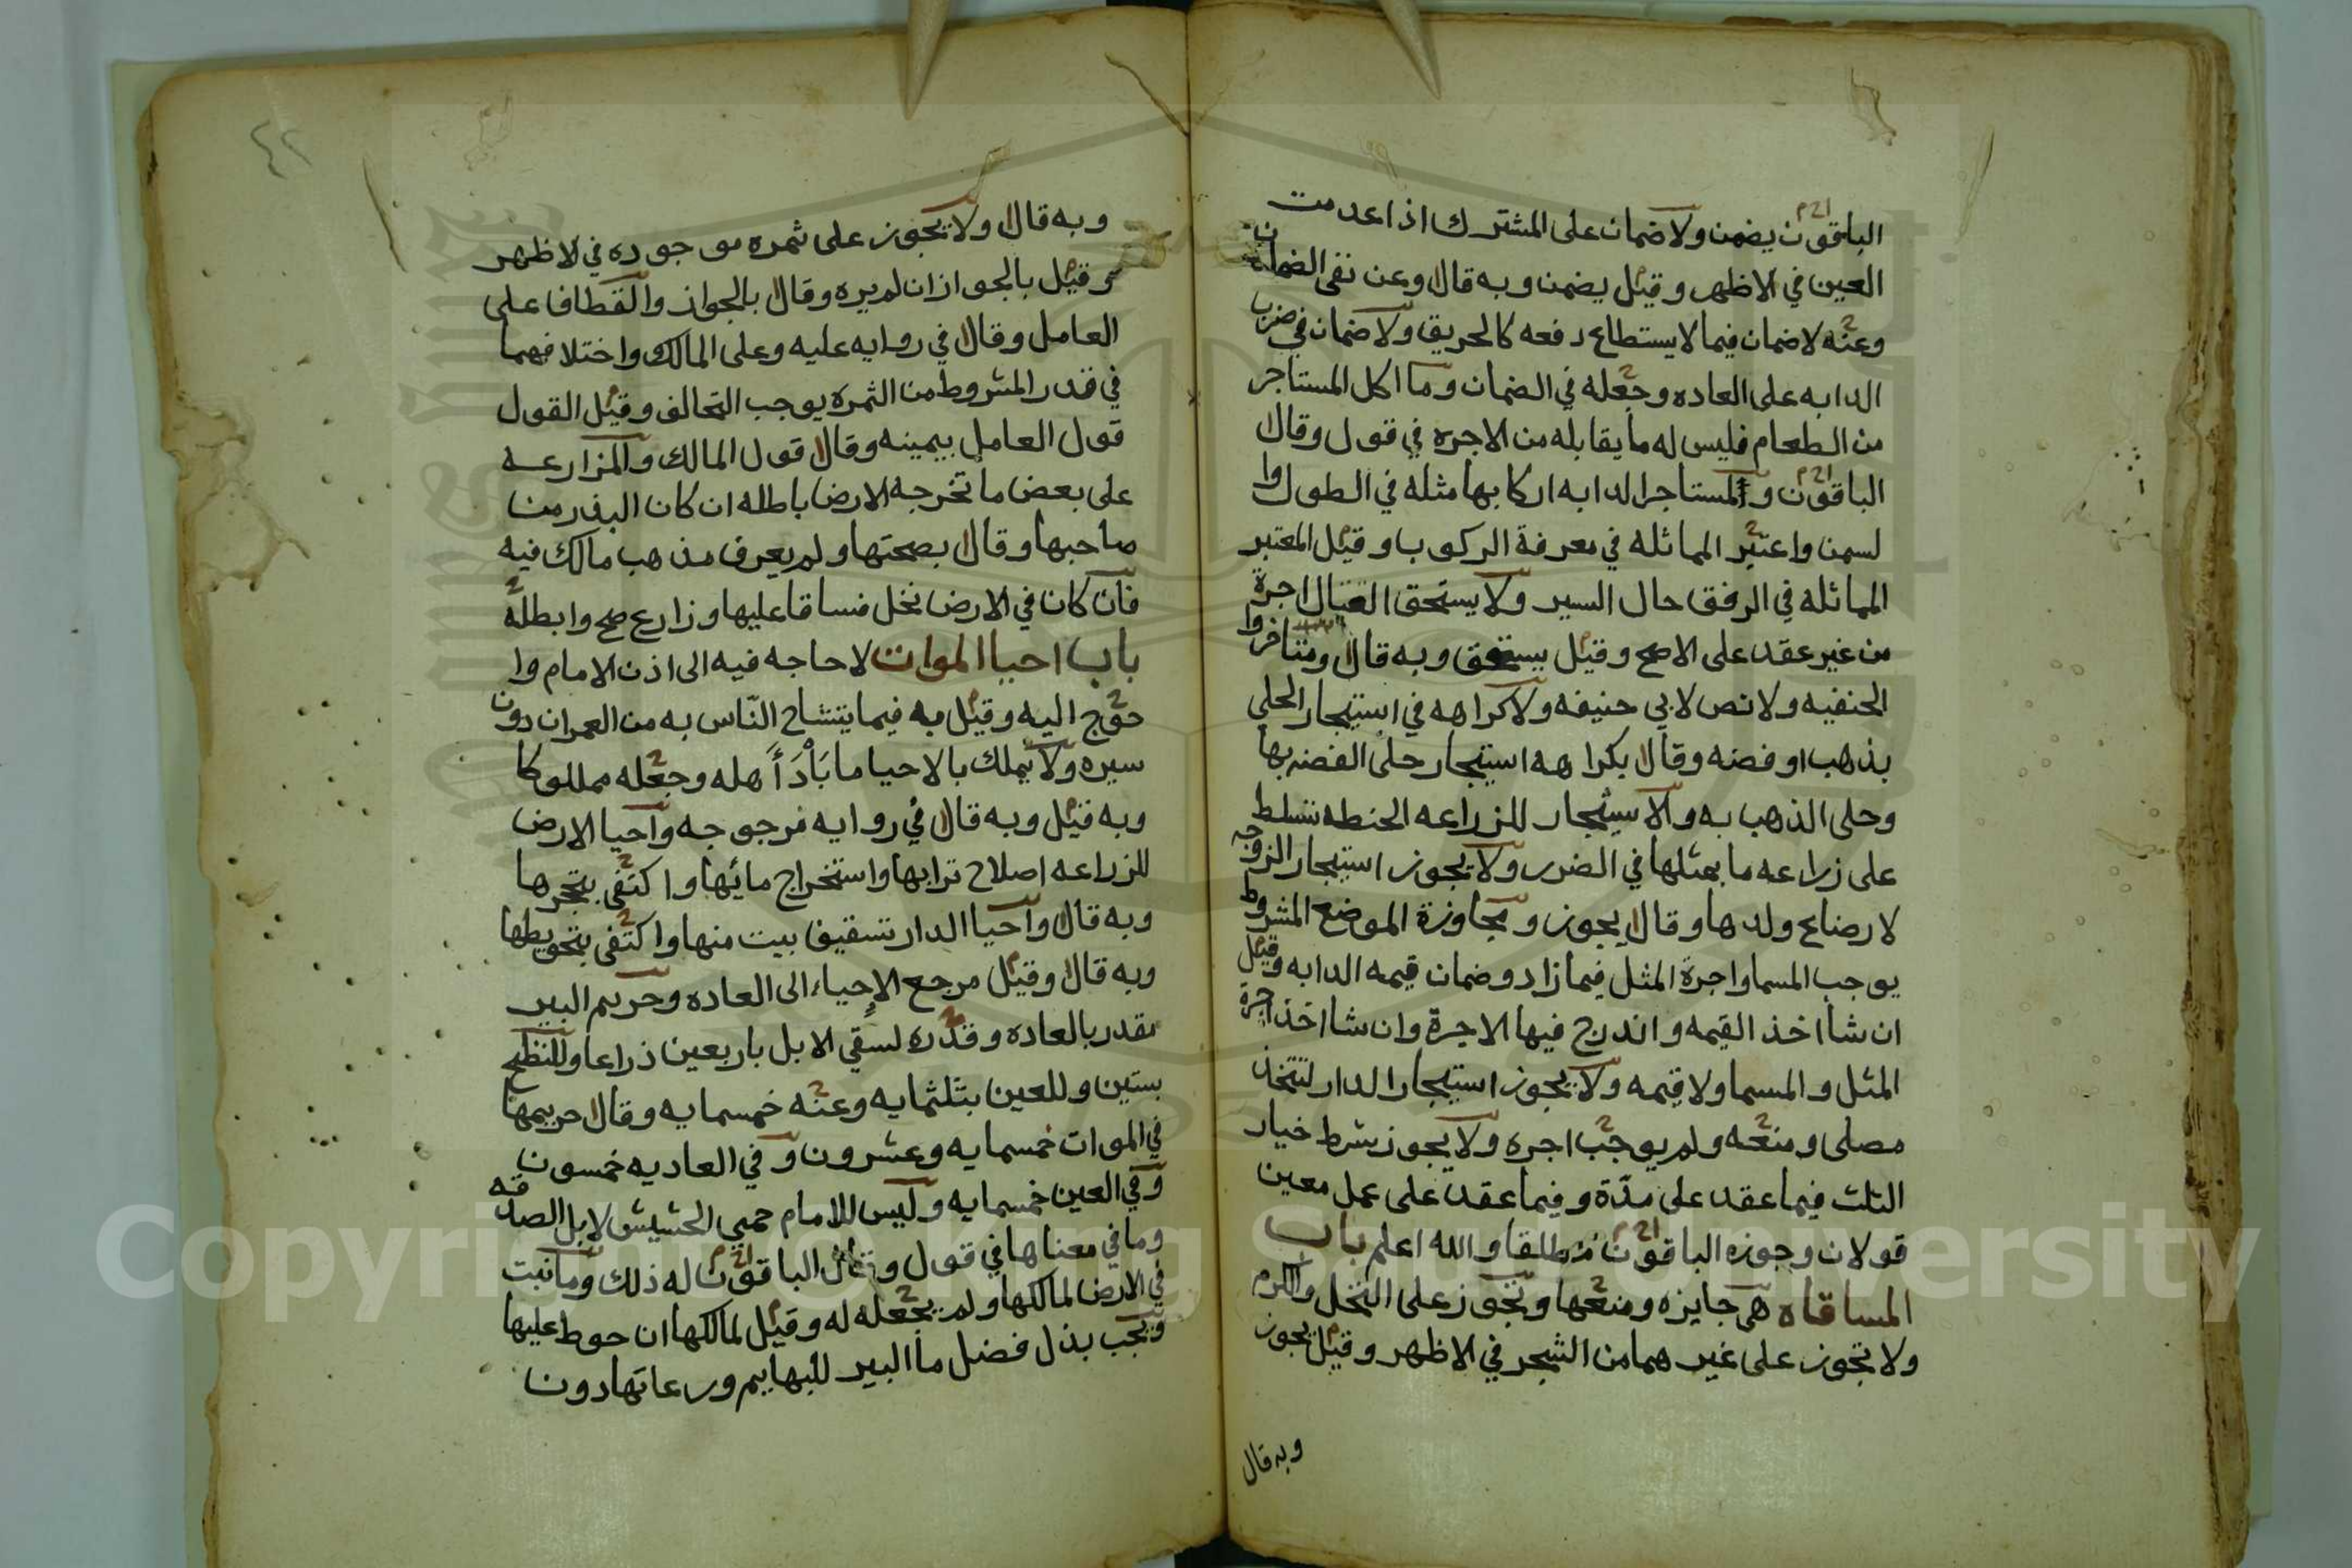 الباقون يضمن ولا ضمان على المشترك اذا عدمت
العين في الاظهر وقيل يضمن وبه قال وعن نفى الضمان
وعنه لا ضمان فيما لا يستطاع دفعه كالحريق ولا ضمان في ضرب
الدابه على العاده وجعله في الضمان وما اكل المستاجر
من الطعام فليس له ما يقابله من الاجره في قول وقال
الباقون والمستاجر الدابه اركابها مثله في الطول وا
لسمن واعتبر المماثله في معرفة الركوب وقيل المعتبر
المماثله في الرفق حال السير ولا يستحق اجرة
من غير عقد على الاصح وقيل يستحق وبه قال ومتاخروا
الحنفيه ولا نص لابي حنيفه ولا كراهه في استيجار الحلي
بذهب او فضه وقال بكراهه استيجار حلى الفضه بها
وحلى الذهب به والاستيجار للزراعه الحنطه تسلط
على زراعه ما بمثلها في الضرر ولا يجوز استيجار الزوجه
لارضاع ولدها وقال يجوز ومجاوزة الموضع المشروط
يوجب المسما واجرة المثل فيما زاد وضمان قيمه الدابه وقيل
ان شا اخذ القيمه واندرج فيها الاجرة وان شا اخذ اجرة
المثل والمسما ولا قيمه ولا يجوز استيجار الدار لتتخذ
مصلى ومنعه ولم يوجب اجره ولا يجوز شرط خيار
الثلث فيما عقد على مدة وفيما عقد على عمل معين
قولان وجوزه الباقون مطلقا والله اعلم باب
المساقاه هي جايزه ومنعها وتجوز على النخل والكرم
ولا تجوز على غيرهما من الشجر في الاظهر وقيل يجوز
وبه قال
٤٢
وبه قال ولا يجوز على ثمره موجوده في لاظهر
وقيل بالجواز ان لم يره وقال بالجواز والقطاف على
العامل وقال في روايه عليه وعلى المالك واختلافهما
في قدر المشروط من الثمره يوجب التحالف وقيل القول
قول العامل بيمينه وقال قول المالك والمزارعه
على بعض ما تخرجه الارض باطله ان كان البذر من
صاحبها وقال بصحتها ولم يعرف مذهب مالك فيه
فان كان في الارض نخل فساقا عليها وزارع صح وابطله
باب احيا الموات لا حاجه فيه الى اذن الامام وا
حوج اليه وقيل به فيما يتشاح الناس به من العمران دون
سيره ولا يملك بالاحيا ما باد أهله وجعله مملوكا
وبه قيل وبه قال في روايه فرجوجه واحيا الارض
للزراعه اصلاح ترابها واستخراج مائها واكتفى بتحجرها
وبه قال واحيا الدار تسقيف بيت منها واكتفى بتحويطها
وبه قال وقيل مرجع الإحياء الى العاده وحريم البير
مقدر بالعاده وقدره لسقي الابل باربعين ذراعا وللنضح
بستين وللعين بثلثمايه وعنه خمسمايه وقال حريمها
في الموات خمسمايه وعشرون وفي العاديه خمسون
وفي العين خمسمايه وليس للامام حمى الحشيش لابل الصدقه
وما في معناها في قول وقال الباقون له ذلك وما نبت
في الارض لمالكها ولم يجعله له وقيل لمالكها ان حوط عليها
ويجب بذل فضل ما البير للبهايم ورعاتها دون